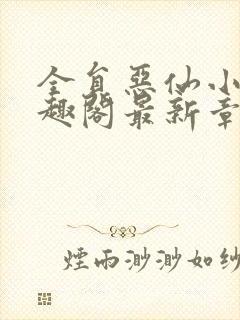 全自恶仙小
趣阁最新章
煙雨渺渺如纱